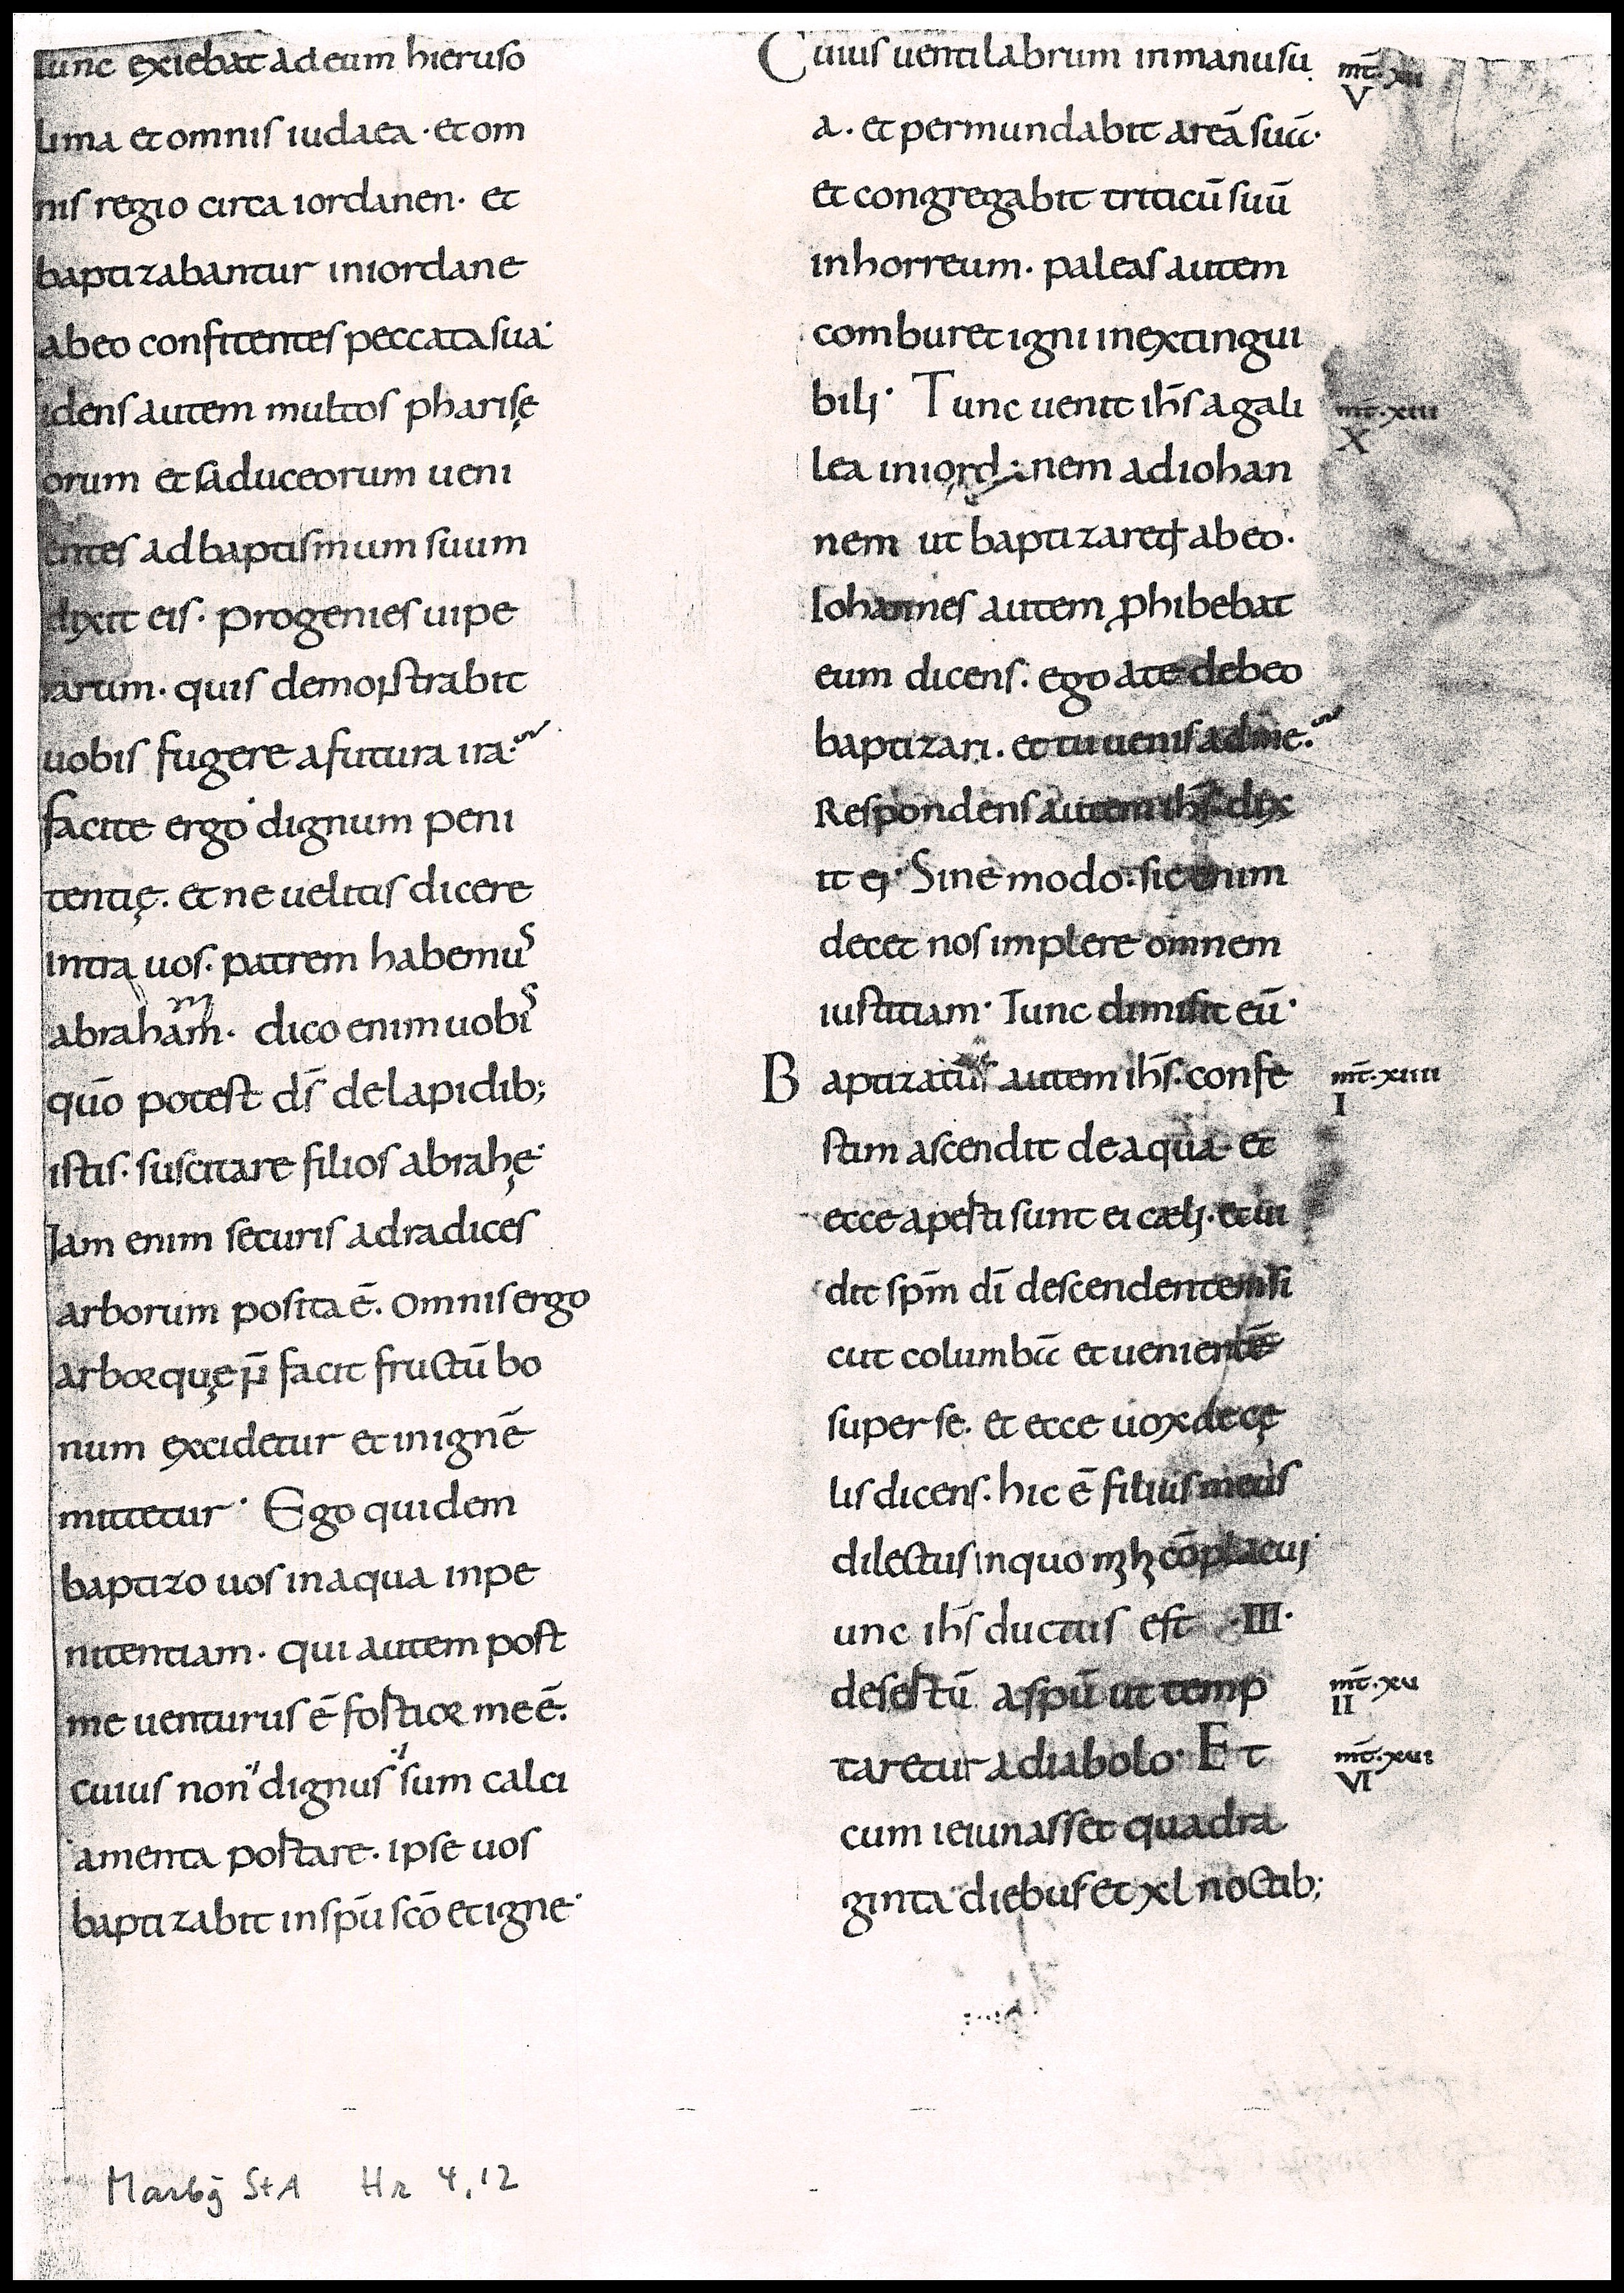 Tunc exiebat ad eum hieruso
lima et omnis iudaea · et om
nis regio circa iordanen · et
baptizabantur in iordane
ab eo confitentes peccata sua·
idens autem multos pharisę
orum et saduceorum ueni
entes ad baptismum suum
dixit eis · progenies uipe
rarum · quis demonstrabit
uobis fugere a futura ira·
facite ergo dignum peni
tentię · et ne uelitis dicere
intra uos · patrem habemus
abraham · dico enim uobis
qūo potest d̄s de lapidib;
istis · suscitare filios abrahę·
Iam enim securis ad radices
arborum posita ē. omnis ergo
arbor quę n̄ facit fructū bo
num excidetur et in ignē
mittetur · Ego quidem
baptizo uos in aqua in pe
nitentiam · qui autem post
me uenturus ē fortior me ē.
cuius non dignus sum calci
amenta portare · ipse uos
baptizabit in spū scō et igne·
Cuius uentilabrum in manu su
a · et permundabit areā suā·
et congregabit triticū suū
in horreum · paleas autem
comburet igni inextingui
bili · Tunc uenit ih̄s a gali
lea in iordanem ad iohan
nem ut baptizaret̉ ab eo ·
Iohannes autem ꝓhibebat
eum dicens · ego a te debeo
baptizari · et tu uenis ad me·
Respondens autem ih̄s dix
it ei · Sine modo · sic enim
decet nos implere omnem
iustitiam · Tunc dimisit eū·
Baptizatus autem ih̄s · confe
stim ascendit de aqua · et
ecce aperti sunt ei cæli · et ui
dit sp̄m dī descendentem si
cut columbā et uenientē
super se · et ecce uox de cę
lis dicens · hic ē filius meus
dilectus in quo mihi cōplacui·
unc ih̄s ductus est ·III·
desertū a spū ut temp
taretur a diabolo · Et
cum ieiunasset quadra
ginta diebus et xl noctib;
mt̄·xii
V
mt̄·xiii
X
mt̄·xiiii
I
mt̄·xv
II
mt̄·xvi
VI
Marbg StA Hr 4,12